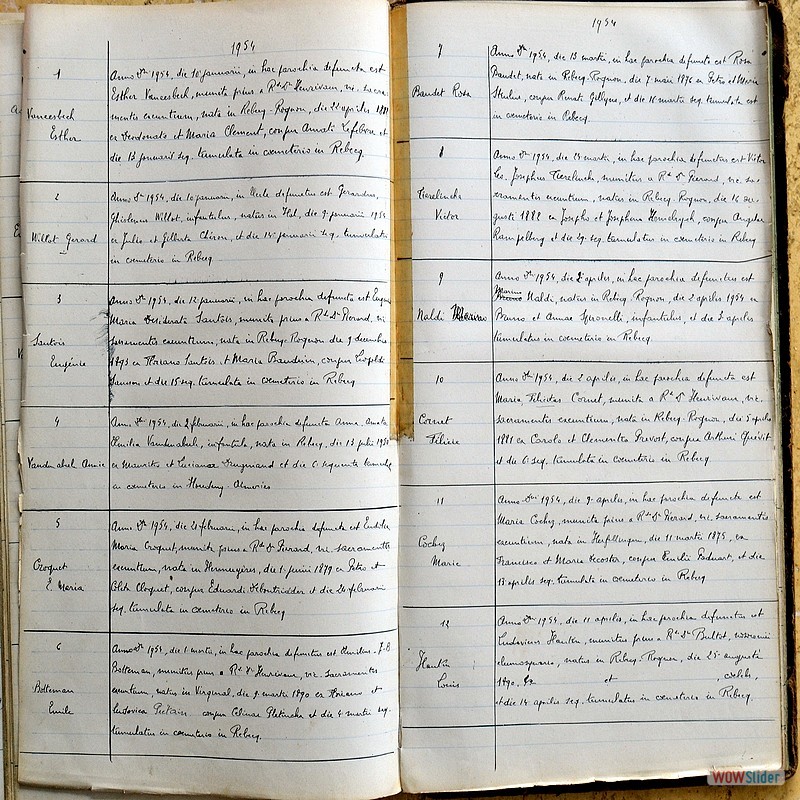 1954
1
Vancesbech
Esther
Anno Dni 1954, die 10 januarii, in hac parochia defuncta est
Esther Vancesbech, munita prius a Rdo Do Henrivaux, vic. sacra
mentis exeuntium, nata in Rebecq-Rognon, die 22 aprilis 1881
ex Deodonato et Maria Clement, conjux Amati Lefebvre et
die 13 januarii seq. tumulata in cœmeterio in Rebecq.
2
Willot Gerard
Anno Dni 1954, die 10 januarii, in defunctus est Gerardus,
Ghislenus Willot, infantulus, natus in Hal, die 9 januarii 1954
ex Julio et Gilberta Chiron, et die 12 januarii seq. tumulatus
in cœmeterio in Rebecq
3
Sautois
Eugénie
Anno Dni 1954, die 12 januarii, in hac parochia defuncta est Eugenia
Maria Desiderata Sautois, munita prius a Rdo Do Pierard, vic.
sacramentis exeuntium, nata in Rebecq-Rognon die 9 decembris
1893 ex Floriano Sautois et Maria Baudouin, conjux Leopoldi
et die 15 seq. tumulata in cœmeterio in Rebecq
4
Vandenabeel Annie
Anno Dni 1954, die 2 februarii, in hac parochia defuncta Anna, Amata
Emilia Vandenabeel, infantula, nata in Rebecq, die 13 julii 195
ex Mauritio et Luciana et die 6 sequente tumulata
in cœmeterio in Houdeng-Aimeries
5
Croquet
E. Maria
Anno Dni 1954, die 20 februarii, in hac parochia defuncta est
Maria Croquet, munita prius a Rdo Do Pierard, vic. sacramentis
exeuntium, nata in Hennuyères, die 1 junii 1879 ex Petro et
Cloquet, conjux Eduardi et die 24 februarii
seq. tumulata in cœmeterio in Rebecq
6
Bolteman
Emile
Anno Dni 1954, die 1 martii, in hac parochia defunctus est Aemilius J-B
Bolteman, munitus prius a Rdo Do Henrivaux, vic. sacramentis
exeuntium, natus in Virginal, die 9 martii 1890 ex et
Ludovica conjux Celinae et die 4 martii seq.
tumulatus in cœmeterio in Rebecq.
1954
7
Baudet Rosa
Anno Dni 1954, die 13 martii, in hac parochia defuncta est Rosa
Baudet, nata in Rebecq-Rognon, die 7 maii 1876 ex Petro et Maria
conjux Renati et die 16 martii seq. tumulata est
in cœmeterio in Rebecq.
8
Tierelinckx
Victor
Anno Dni 1954, die 25 martii, in hac parochia defunctus est Victor
Leo Josephus Tierelinckx, munitus a Rdo Do Pierard, vic. sa-
cramentis exeuntium, natus in Rebecq-Rognon, die 16 au-
gusti 1888 ex Josepho et Josephina conjux Angelae
Rampelberg et die 29 seq. tumulatus in cœmeterio in Rebecq
9
Naldi Marino
Anno Dni 1954, die 2 aprilis, in hac parochia defunctus est
Marino
Naldi, natus in Rebecq-Rognon, die 2 aprilis 1954 ex
Bruno et Annae infantulus, et die 3 aprilis
tumulatus in cœmeterio in Rebecq.
10
Cornet
Félicie
Anno Dni 1954, die 2 aprilis, in hac parochia defuncta est
Maria Felicitas Cornet, munita a Rdo Do Henrivaux, vic.
sacramentis exeuntium, nata in Rebecq-Rognon, die 5 aprilis
1881 ex Carolo et Clementia Prevost, conjux Arthuri
et die 6 seq. tumulata in cœmeterio in Rebecq.
11
Cochez
Marie
Anno Dni 1954, die 9 aprilis, in hac parochia defuncta est
Maria Cochez, munita prius a Rdo Do Pierard, vic. sacramentis
exeuntium, nata in Herffelingen, die 11 martii 1875, ex
Francisco et Maria Decoster, conjux Emilii et die
13 aprilis seq. tumulata in cœmeterio in Rebecq
12
Hautin
Louis
Anno Dni 1954, die 11 aprilis, in hac parochia defunctus est
Ludovicus Hautin, munitus prius a Rdo Do Bultot,
natus in Rebecq-Rognon, die 25 augusti
1890, ex et cœlebs,
et die 14 aprilis seq. tumulatus in cœmeterio in Rebecq.
WOWSlider